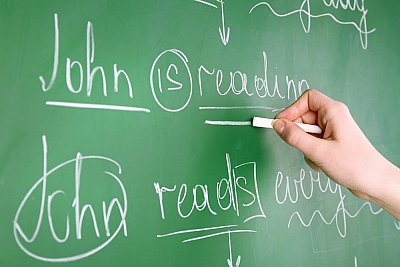 John is reading
John read[s] every